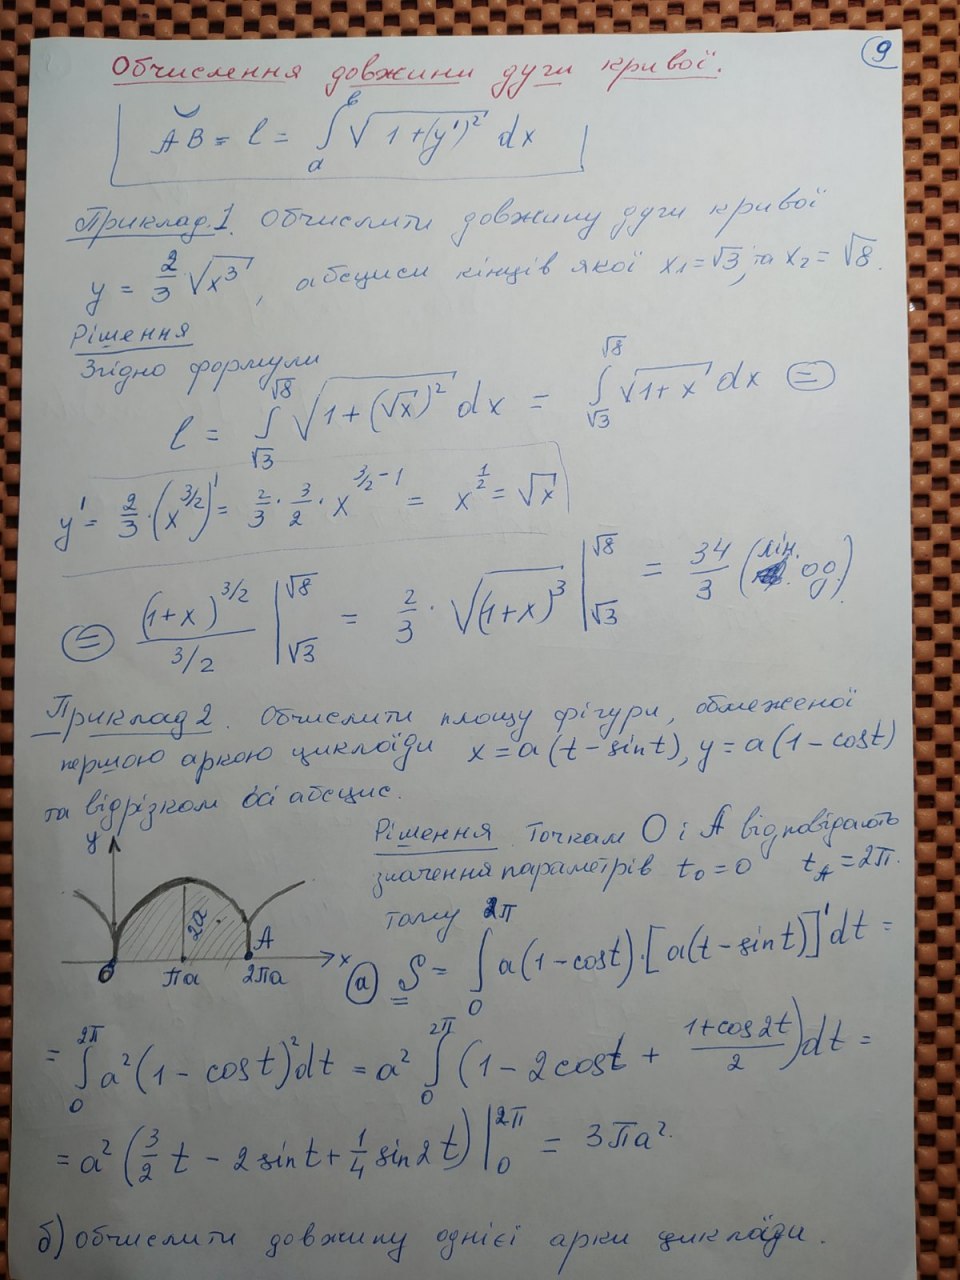 9
Обчислення довжини дуги кривої.
ÂB = l = ∫ₐᵇ √(1+(y')²) dx
Приклад.1. Обчислити довжину дуги кривої
y = 2/3 √x³, абсциси кінців якої x₁ = √3, та x₂ = √8.
Рішення
Згідно формули
l = ∫_{√3}^{√8} √(1+(√x)²) dx = ∫_{√3}^{√8} √(1+x) dx ⊜
y' = 2/3 · (x^{3/2})' = 2/3 · 3/2 · x^{3/2-1} = x^{1/2} = √x
⊜ (1+x)^{3/2} / 3/2 |_{√3}^{√8} = 2/3 · √(1+x)³ |_{√3}^{√8} = 34/3 (лін. од)
Приклад 2. Обчислити площу фігури, обмеженої
першою аркою циклоїди x = a(t - sint), y = a(1 - cost)
та відрізком осі абсцис.
Рішення. Точкам O і A відповідають
значення параметрів t₀ = 0 t_A = 2π.
тому
y
2a
A
O
πa
2πa
x
а) S = ∫₀^{2π} a(1 - cost)·[a(t - sint)]' dt =
= ∫₀^{2π} a²(1 - cost)² dt = a² ∫₀^{2π} (1 - 2cost + (1+cos2t)/2) dt =
= a² (3/2 t - 2sint + 1/4 sin2t) |₀^{2π} = 3πa².
б) обчислити довжину однієї арки циклоїди.